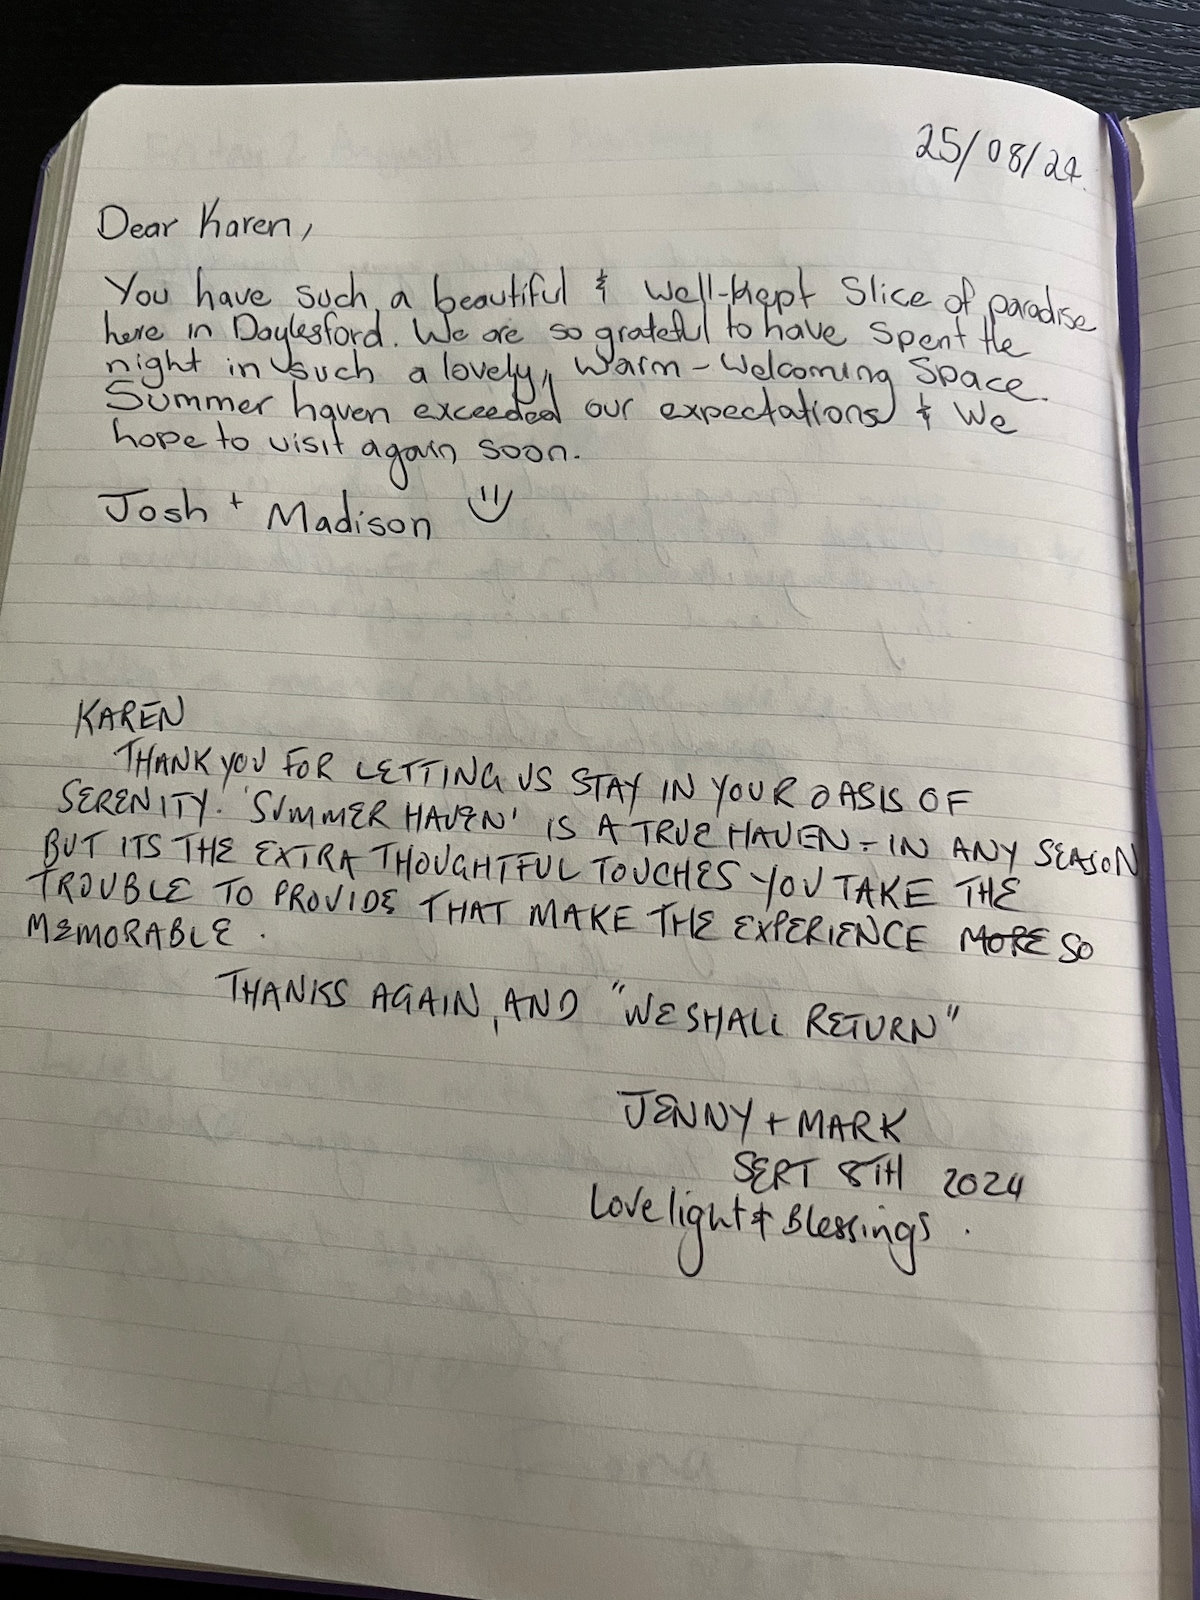 25/08/24.
Dear Karen,
You have such a beautiful & well-kept slice of paradise
here in Daylesford. We are so grateful to have spent the
night in such a lovely, warm-welcoming space.
Summer haven exceeded our expectations & we
hope to visit again soon.
Josh + Madison
KAREN
THANK YOU FOR LETTING US STAY IN YOUR OASIS OF
SERENITY. 'SUMMER HAVEN' IS A TRUE HAVEN - IN ANY SEASON
BUT ITS THE EXTRA THOUGHTFUL TOUCHES YOU TAKE THE
TROUBLE TO PROVIDE THAT MAKE THE EXPERIENCE MORE SO
MEMORABLE.
THANKS AGAIN, AND "WE SHALL RETURN"
JENNY + MARK
SEPT 8TH 2024
Love light & Blessings.